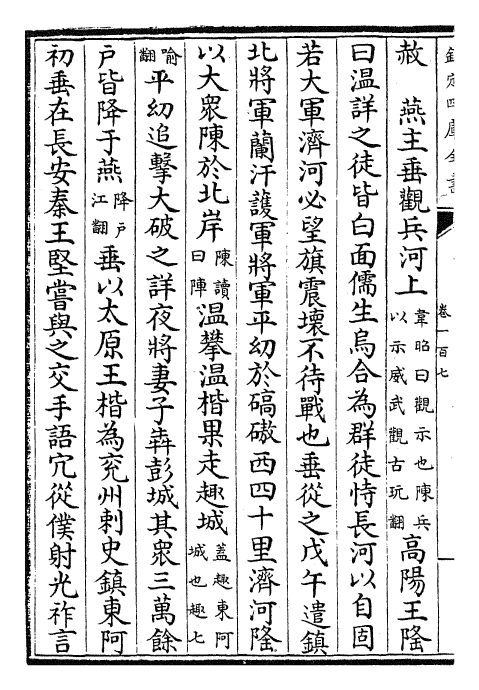 欽定四庫全書
卷一百七
赦　燕主垂觀兵河上韋昭曰觀示也陳兵以示威武觀古玩翻高陽王隆
曰温詳之徒皆白面儒生烏合為羣徒恃長河以自固
若大軍濟河必望旗震壞不待戰也垂從之戊午遣鎮
北將軍蘭汗䕶軍將軍平幼於碻磝西四十里濟河隆
以大衆陳於北岸陳讀曰陣温攀温楷果走趣城蓋趣東阿城也趣七
喻翻平幼追擊大破之詳夜將妻子犇彭城其衆三萬餘
户皆降于燕降户江翻垂以太原王楷為兖州刺史鎮東阿
初垂在長安秦王堅嘗與之交手語宂從僕射光祚言